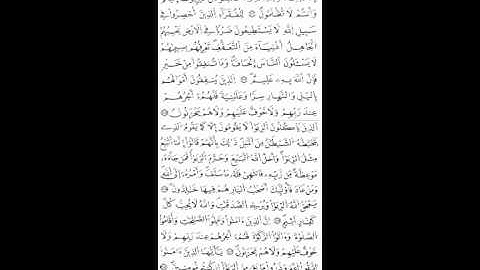 وَأَنتُمْ لَا تُظْلَمُونَ ۞ لِلْفُقَرَآءِ الذِينَ أُحْصِرُواْ فِے
سَبِيلِ اللَّهِ لَا يَسْتَطِيعُونَ ضَرْباً فِے الْأَرْضِ يَحْسِبُهُمُ
الْجَاهِلُ أَغْنِيَآءَ مِنَ التَّعَفُّفِ تَعْرِفُهُم بِسِيمَٰهُمْ
لَا يَسْـَٔلُونَ النَّاسَ إِلْحَافاً وَمَا تُنفِقُواْ مِنْ خَيْرٍ
فَإِنَّ اللَّهَ بِهِۦ عَلِيمٌ ۞ الذِينَ يُنفِقُونَ أَمْوَٰلَهُم
بِالَّيْلِ وَالنَّهَارِ سِرّاً وَعَلَانِيَةً فَلَهُمْ أَجْرُهُمْ
عِندَ رَبِّهِمْ وَلَا خَوْفٌ عَلَيْهِمْ وَلَا هُمْ يَحْزَنُونَ ۞
الذِينَ يَأْكُلُونَ الرِّبَوٰاْ لَا يَقُومُونَ إِلَّا كَمَا يَقُومُ الذِے
يَتَخَبَّطُهُ الشَّيْطَٰنُ مِنَ الْمَسِّ ذَٰلِكَ بِأَنَّهُمْ قَالُوٓاْ إِنَّمَا الْبَيْعُ
مِثْلُ الرِّبَوٰاْ وَأَحَلَّ اللَّهُ الْبَيْعَ وَحَرَّمَ الرِّبَوٰاْ فَمَن جَآءَهُۥ
مَوْعِظَةٌ مِّن رَّبِّهِۦ فَانتَهَىٰ فَلَهُۥ مَا سَلَفَ وَأَمْرُهُۥٓ إِلَى اللَّهِ
وَمَنْ عَادَ فَأُوْلَٰٓئِكَ أَصْحَٰبُ النَّارِ هُمْ فِيهَا خَٰلِدُونَ ۞
يَمْحَقُ اللَّهُ الرِّبَوٰاْ وَيُرْبِے الصَّدَقَٰتِ وَاللَّهُ لَا يُحِبُّ كُلَّ
كَفَّارٍ أَثِيمٍ ۞ إِنَّ الذِينَ ءَامَنُواْ وَعَمِلُواْ الصَّٰلِحَٰتِ وَأَقَامُواْ
الصَّلَوٰةَ وَءَاتَوُاْ الزَّكَوٰةَ لَهُمْ أَجْرُهُمْ عِندَ رَبِّهِمْ وَلَا
خَوْفٌ عَلَيْهِمْ وَلَا هُمْ يَحْزَنُونَ ۞ يَٰٓأَيُّهَا الذِينَ ءَامَنُواْ